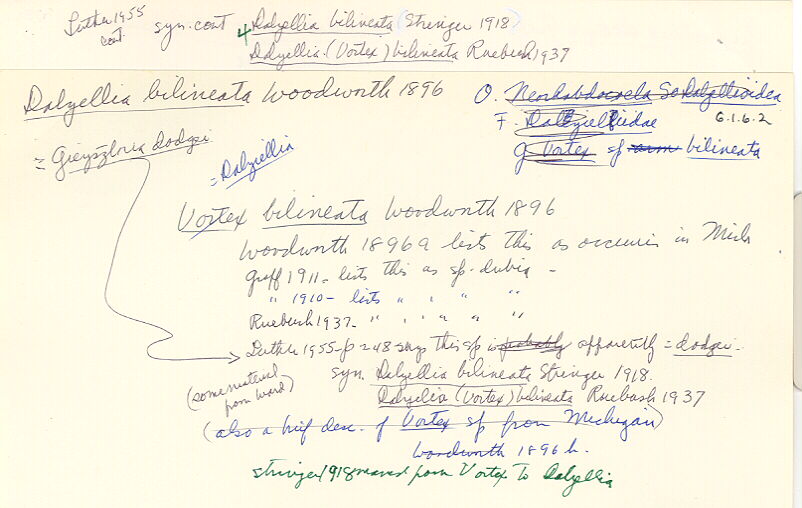 Luther 1955 cont. syn. cont 4 Dalyellia bilineata (Stringer 1918)
Dalyellia (Vortex) bilineata Ruebush 1937
Dalyellia bilineata Woodworth 1896
O. Neorhabdocoela So Dalyellioidea
= Gieysztoria dodgei
F. Dalyelliidae 6.1.6.2
= Dalyiellia
g Vortex sp bilineata
Vortex bilineata Woodworth 1896
Woodworth 1896a lists this as occurin in Mich
Graff 1911- lists this as sp. dubia -
" 1910- lists " " " "
Ruebush 1937- " " " " "
Luther 1955-p 248 says this sp is probably apparently = dodgei-
(some material from Ward)
syn. Dalyellia bilineata Stringer 1918.
Dalyellia (Vortex) bilineata Ruebush 1937
(also a brief desc. of Vortex sp from Michigan)
Woodworth 1896 b.
Stringer 1918 moved from Vortex to Dalyellia